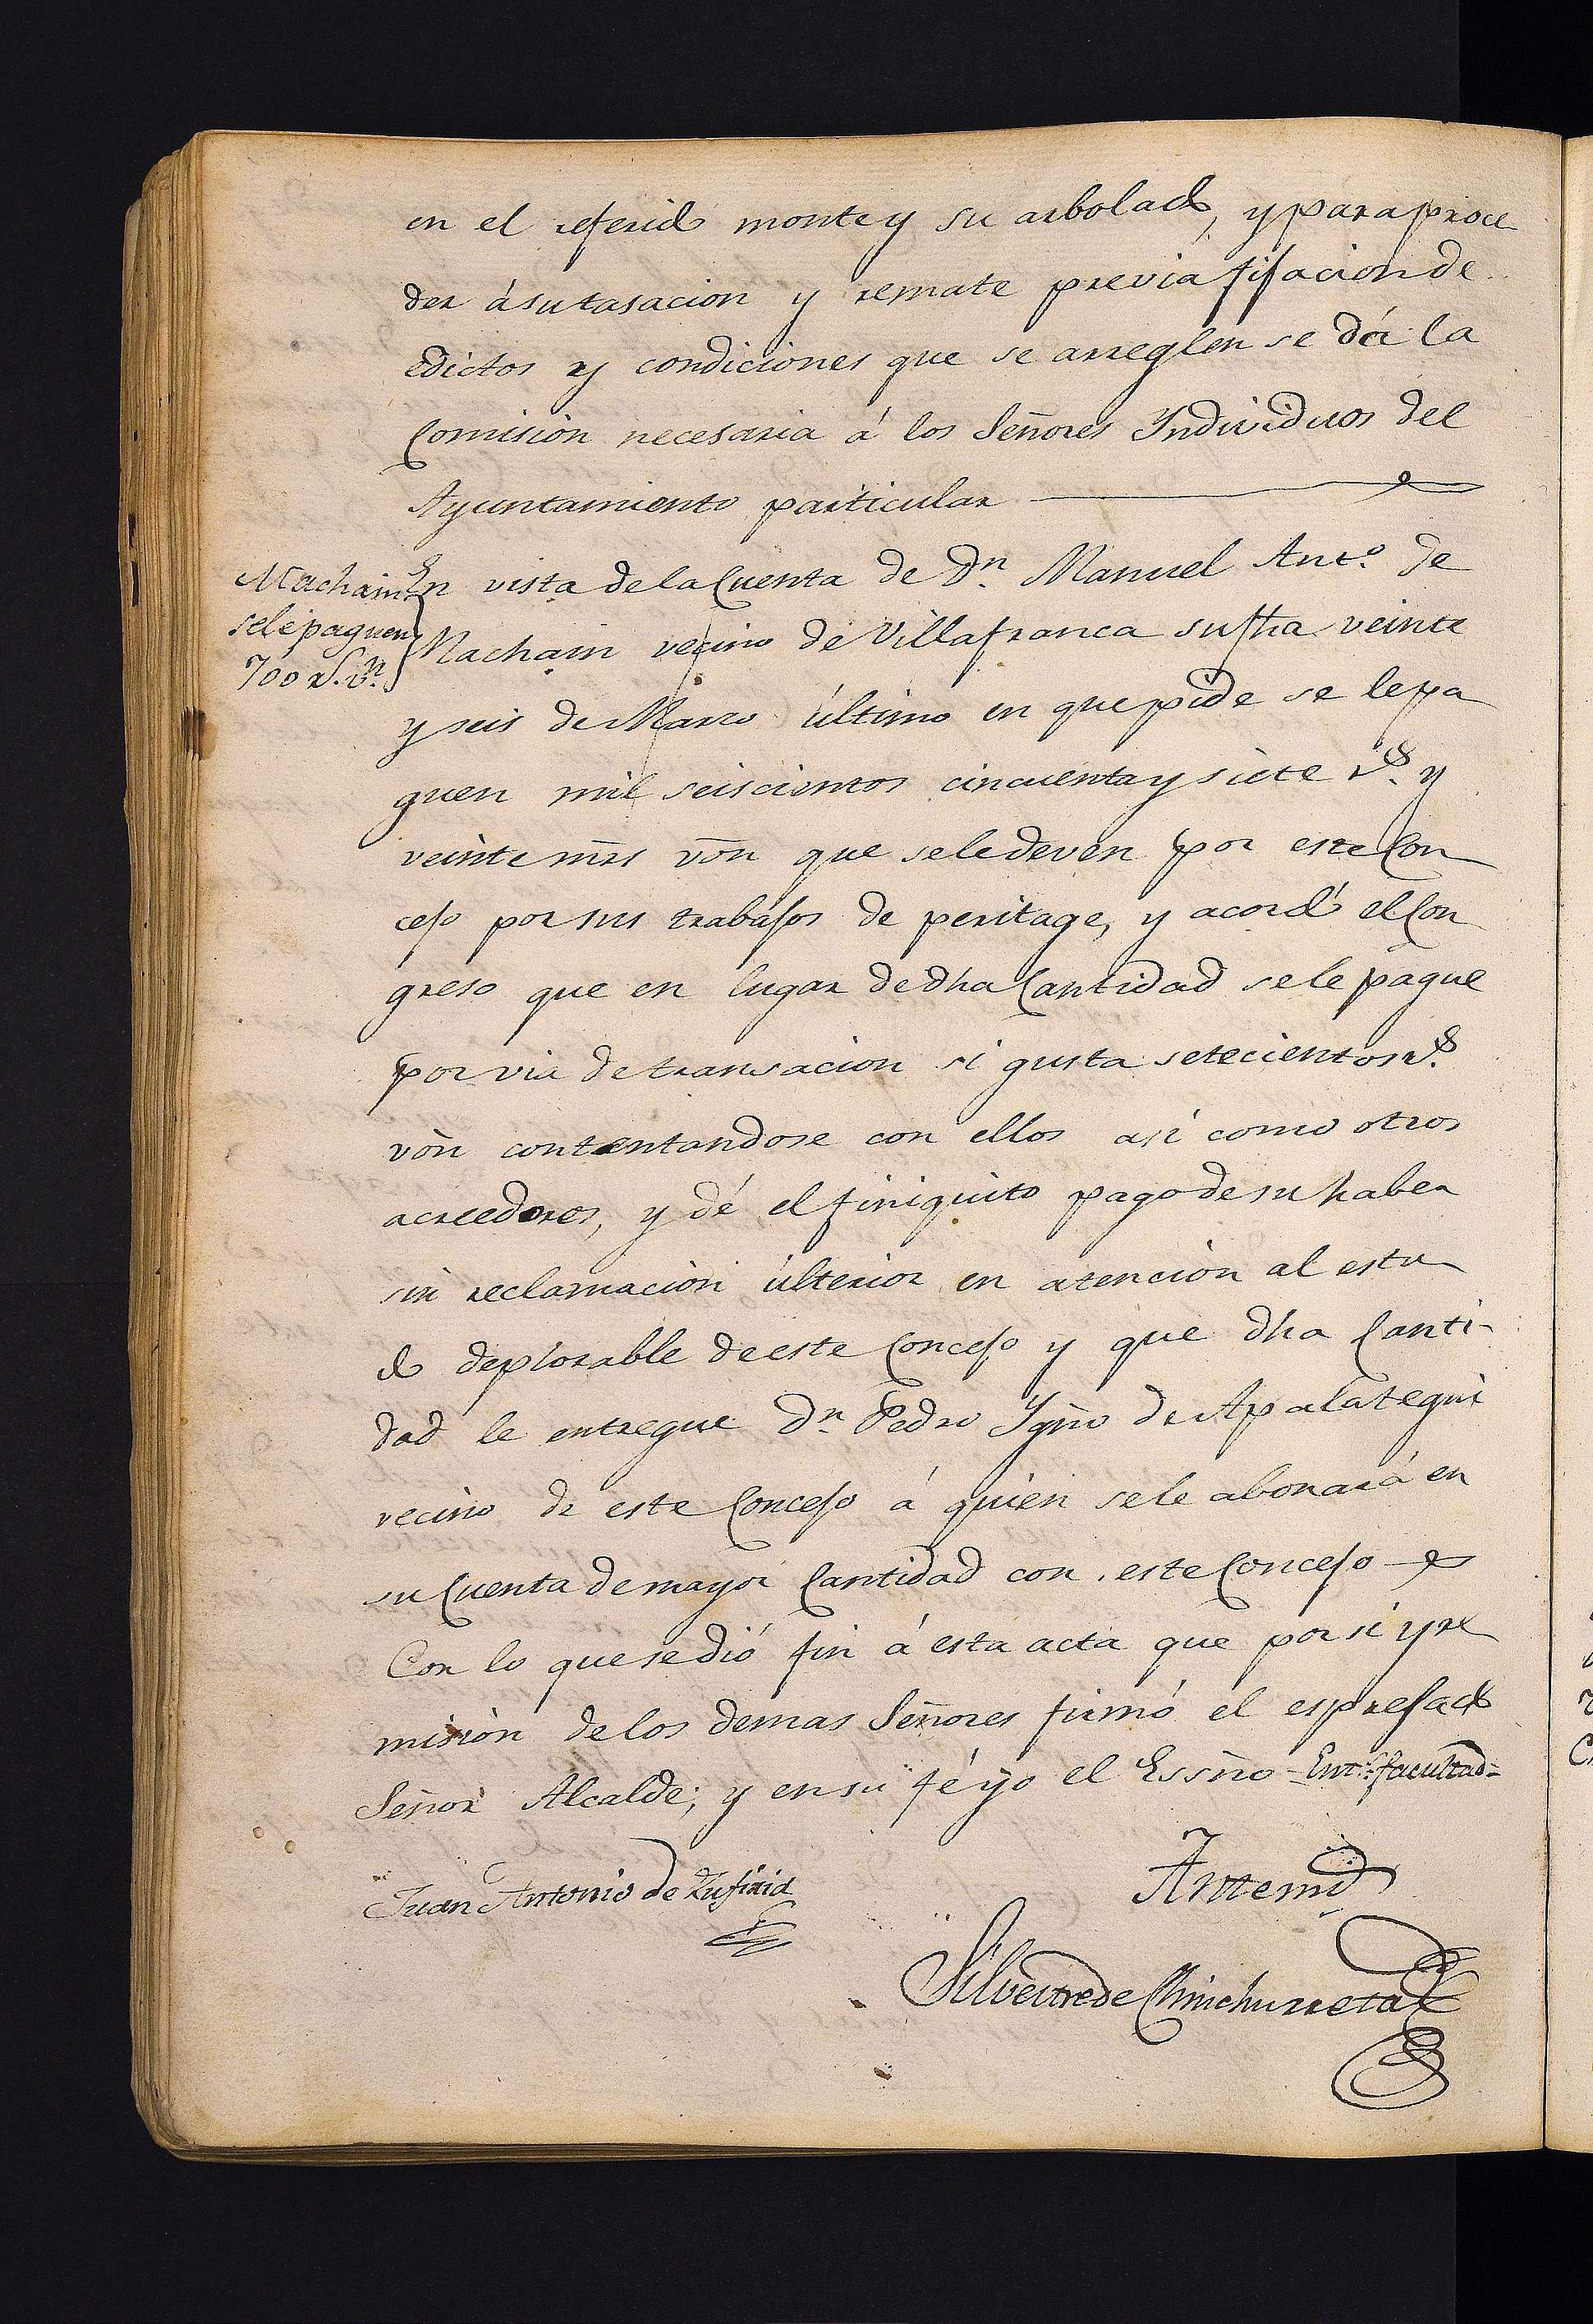 en el referido monte y su arbolado, y para proce
der á su tasacion y remate previa fijacion de
edictos y condiciones que se arreglen se dá la
Comision necesaria á los Señores Yndividuos del
Ayuntamiento particular
Machain
se le paguen
700 rs. vn.
En vista de la Cuenta de Dn. Manuel Anto. de
Machain vecino de Villafranca su fha veinte
y seis de Marzo último en que pide se le pa
guen mil seiscientos cincuenta y siete rs. y
veinte mrs von que se le deven por este Con
cejo por sus trabajos de peritage, y acordó el Con
greso que en lugar de dha Cantidad se le pague
por via de transacion si gusta setecientos rs.
von contentandose con ellos asi como otros
acreedores, y dé el finiquito pago de su haber
sin reclamacion ulterior en atencion al esta
do deplorable de este Concejo y que dha Canti-
dad le entregue Dn. Pedro Ygno de Apalategui
vecino de este Concejo á quien se le abonará en
su Cuenta de mayor Cantidad con este Concejo
Con lo que se dió fin á esta acta que por sí y re
mision de los demas Señores firmó el espresado
Señor Alcalde; y en su fé yo el Essno = Ent.: facultad =
Juan Antonio de Zufiria
Antemi
Silvestre de Chinchurreta